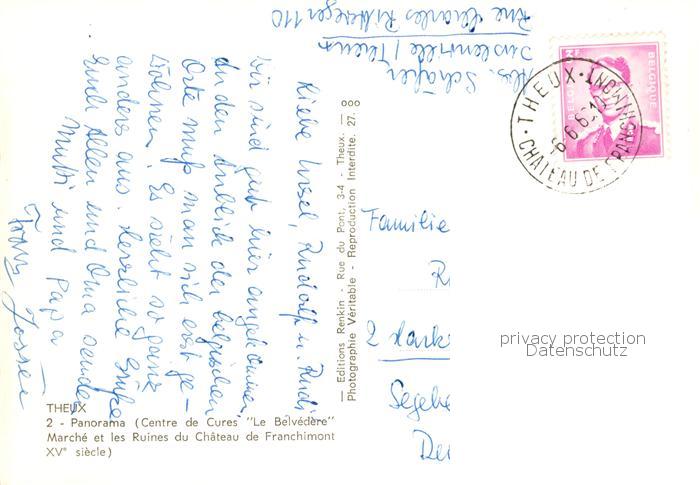 Abs. Schäfer
Juslenville / Theux
Rue Charles Rittweger 110
BELGIQUE
BELGIE
THEUX · FRANCHIMONT
CHATEAU DE FRANCHIMONT
Liebe Ursel, Rudolf u. Rudi
Wir sind gut hier angekommen,
An den Anblick der belgischen
Orte muß man sich erst ge-
wöhnen. Es sieht so ganz
anders aus. Herzliche Grüße
Euch Allen und Oma senden
Mutti und Papa
Familie
R
2
Segebe
— Editions Renkin - Rue du Pont, 3-4 - Theux. — ooo
Photographie Véritable - Reproduction Interdite. 27.
privacy protection
Datenschutz
THEUX
2 - Panorama (Centre de Cures "Le Belvédère"
Marché et les Ruines du Château de Franchimont
XVᵉ siècle)